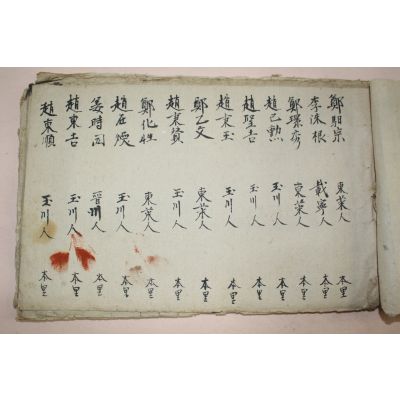 鄭相宗 東萊人 本里
李洙根 載寧人 本里
鄭環秀 東萊人 本里
趙己勲 玉川人 本里
趙聖吉 玉川人 本里
趙東玉 玉川人 本里
鄭乙文 東萊人 本里
趙東贊 玉川人 本里
鄭化 東萊人 本里
趙在煥 玉川人 本里
姜時 晉州人 本里
趙東吉 玉川人 本里
趙東順 玉川人 本里